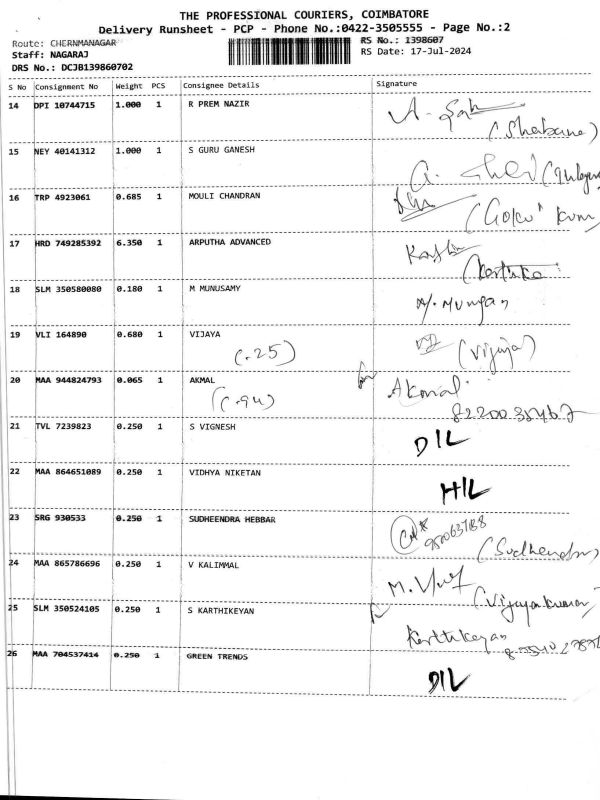 THE PROFESSIONAL COURIERS, COIMBATORE
Delivery Runsheet - PCP - Phone No.:0422-3505555 - Page No.:2
Route: CHERNMANAGAR RS No.: 1398607
Staff: NAGARAJ RS Date: 17-Jul-2024
DRS No.: DCJB139860702
S No Consignment No Weight PCS Consignee Details Signature
14 DPI 10744715 1.000 1 R PREM NAZIR
15 NEY 40141312 1.000 1 S GURU GANESH
16 TRP 4923061 0.685 1 MOULI CHANDRAN
17 HRD 749285392 6.350 1 ARPUTHA ADVANCED
18 SLM 350580080 0.180 1 M MUNUSAMY
19 VLI 164890 0.680 1 VIJAYA (Vijaya)
(.25)
20 MAA 944824793 0.065 1 AKMAL Akmal
(.94)
21 TVL 7239823 0.250 1 S VIGNESH D/L
22 MAA 864651089 0.250 1 VIDHYA NIKETAN H/L
23 SRG 930533 0.250 1 SUDHEENDRA HEBBAR
24 MAA 865786696 0.250 1 V KALIMMAL
(Vijayakumar)
25 SLM 350524105 0.250 1 S KARTHIKEYAN
Karthikeyan
26 MAA 704537414 0.250 1 GREEN TRENDS D/L